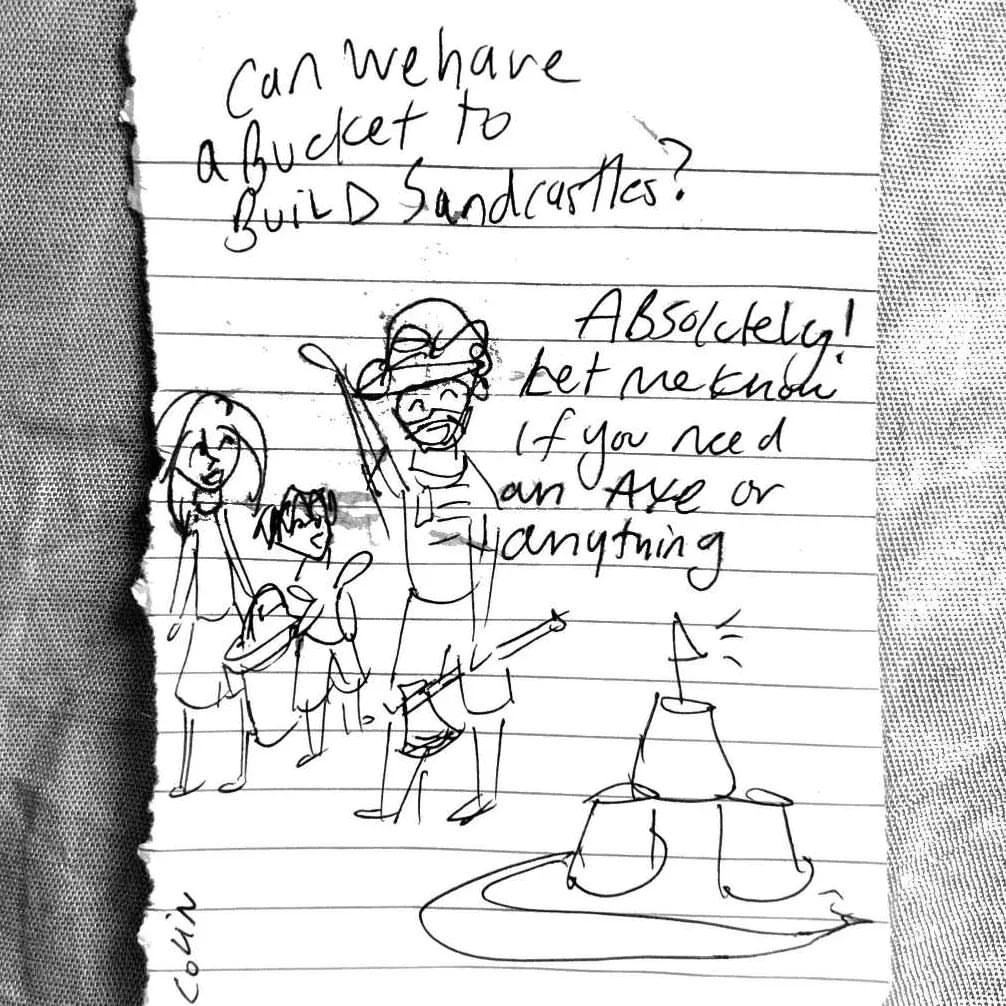 Can We have
a Bucket to
BuiLD Sandcastles?
ABsolutely!
Let me know
if you need
an Axe or
anything
Colin